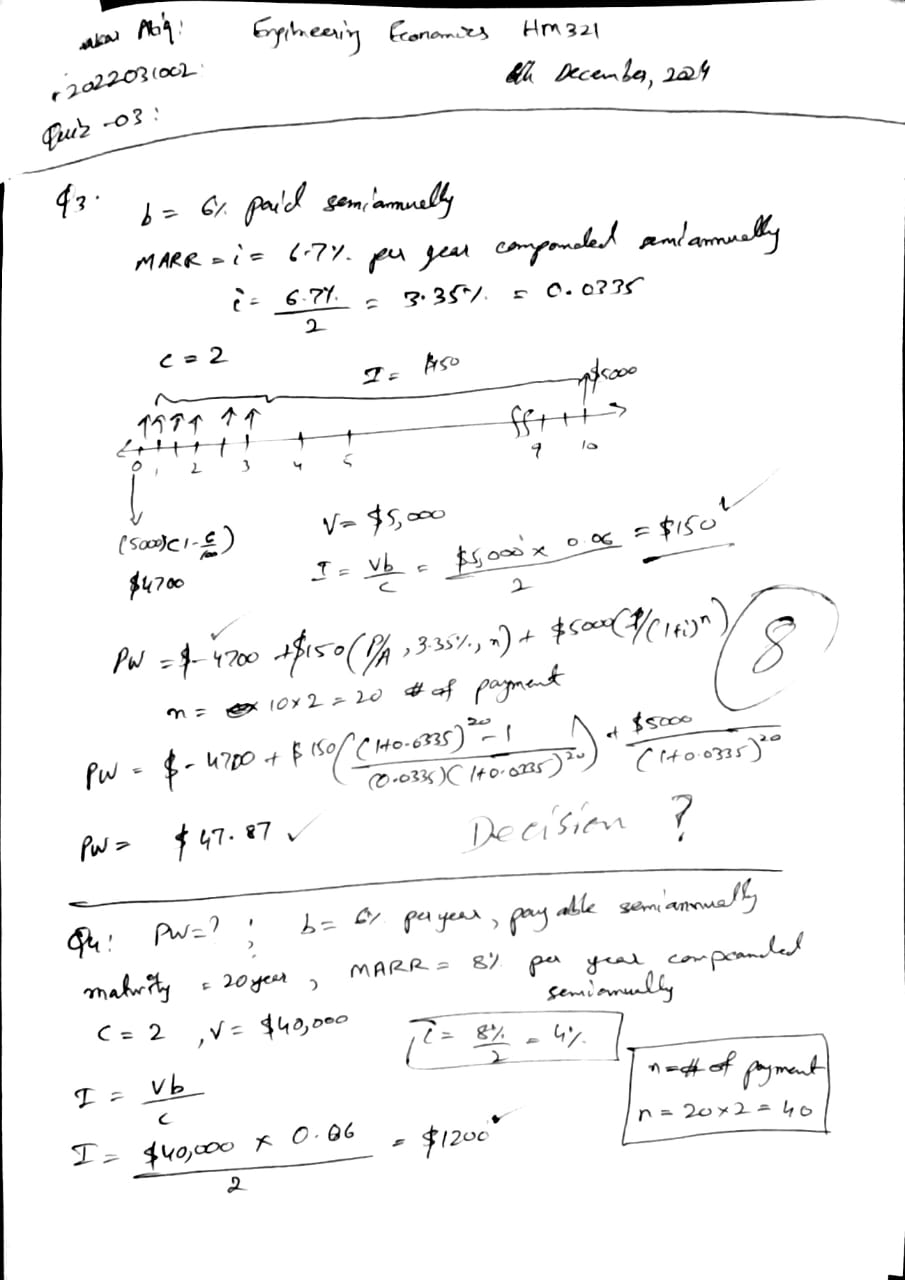 Engineering Economics HM321
December, 2024
2022031002
Quiz -03:
Q3.
b = 6% paid semiannually
MARR = i = 6.7% per year compounded semiannually
i = 6.7% / 2 = 3.35% = 0.0335
C = 2
I = $150
$5000
0 1 2 3 4 5 9 10
(5000)(1-6/100)
$4700
V = $5,000
I = Vb/c = $5,000 x 0.06 / 2 = $150 ✓
PW = $-4700 + $150(P/A, 3.35%, n) + $5000(1/(1+i)^n)
8
n = 10x2 = 20 # of payment
PW = $-4700 + $150((1+0.0335)^20 - 1 / (0.0335)(1+0.0335)^20) + $5000 / (1+0.0335)^20
PW = $47.87 ✓
Decision ?
Q4: PW=? ; b = 6% per year, payable semiannually
maturity = 20 year, MARR = 8% per year compounded
semiannually
C = 2, V = $40,000
i = 8% / 2 = 4%
n = # of payment
n = 20x2 = 40
I = Vb / c
I = $40,000 x 0.06 / 2 = $1200 ✓